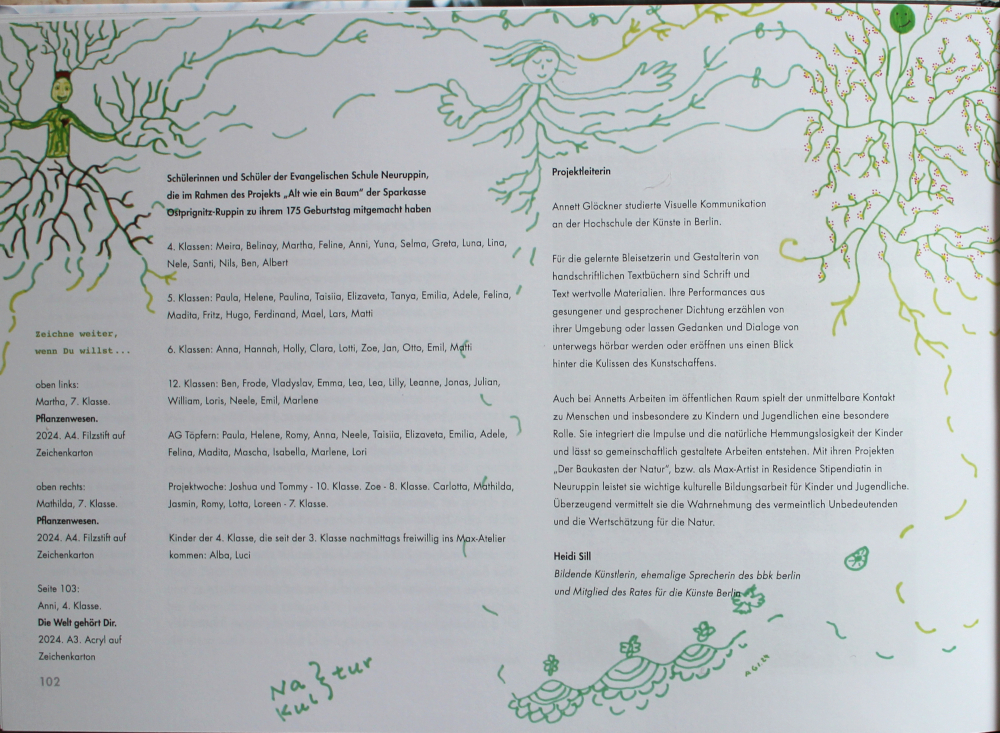 Schülerinnen und Schüler der Evangelischen Schule Neuruppin,
die im Rahmen des Projekts „Alt wie ein Baum" der Sparkasse
Ostprignitz-Ruppin zu ihrem 175 Geburtstag mitgemacht haben
4. Klassen: Meira, Belinay, Martha, Feline, Anni, Yuna, Selma, Greta, Luna, Lina,
Nele, Santi, Nils, Ben, Albert
5. Klassen: Paula, Helene, Paulina, Taisiia, Elizaveta, Tanya, Emilia, Adele, Felina,
Madita, Fritz, Hugo, Ferdinand, Mael, Lars, Matti
6. Klassen: Anna, Hannah, Holly, Clara, Lotti, Zoe, Jan, Otto, Emil, Matti
12. Klassen: Ben, Frode, Vladyslav, Emma, Lea, Lea, Lilly, Leanne, Jonas, Julian,
William, Loris, Neele, Emil, Marlene
AG Töpfern: Paula, Helene, Romy, Anna, Neele, Taisiia, Elizaveta, Emilia, Adele,
Felina, Madita, Mascha, Isabella, Marlene, Lori
Projektwoche: Joshua und Tommy - 10. Klasse. Zoe - 8. Klasse. Carlotta, Mathilda,
Jasmin, Romy, Lotta, Loreen - 7. Klasse.
Kinder der 4. Klasse, die seit der 3. Klasse nachmittags freiwillig ins Max-Atelier
kommen: Alba, Luci
Zeichne weiter,
wenn Du willst...
oben links:
Martha, 7. Klasse.
Pflanzenwesen.
2024. A4. Filzstift auf
Zeichenkarton
oben rechts:
Mathilda, 7. Klasse.
Pflanzenwesen.
2024. A4. Filzstift auf
Zeichenkarton
Seite 103:
Anni, 4. Klasse.
Die Welt gehört Dir.
2024. A3. Acryl auf
Zeichenkarton
102
Na } tur
Kul
Projektleiterin
Annett Glöckner studierte Visuelle Kommunikation
an der Hochschule der Künste in Berlin.
Für die gelernte Bleisetzerin und Gestalterin von
handschriftlichen Textbüchern sind Schrift und
Text wertvolle Materialien. Ihre Performances aus
gesungener und gesprochener Dichtung erzählen von
ihrer Umgebung oder lassen Gedanken und Dialoge von
unterwegs hörbar werden oder eröffnen uns einen Blick
hinter die Kulissen des Kunstschaffens.
Auch bei Annetts Arbeiten im öffentlichen Raum spielt der unmittelbare Kontakt
zu Menschen und insbesondere zu Kindern und Jugendlichen eine besondere
Rolle. Sie integriert die Impulse und die natürliche Hemmungslosigkeit der Kinder
und lässt so gemeinschaftlich gestaltete Arbeiten entstehen. Mit ihren Projekten
„Der Baukasten der Natur", bzw. als Max-Artist in Residence Stipendiatin in
Neuruppin leistet sie wichtige kulturelle Bildungsarbeit für Kinder und Jugendliche.
Überzeugend vermittelt sie die Wahrnehmung des vermeintlich Unbedeutenden
und die Wertschätzung für die Natur.
Heidi Sill
Bildende Künstlerin, ehemalige Sprecherin des bbk berlin
und Mitglied des Rates für die Künste Berlin